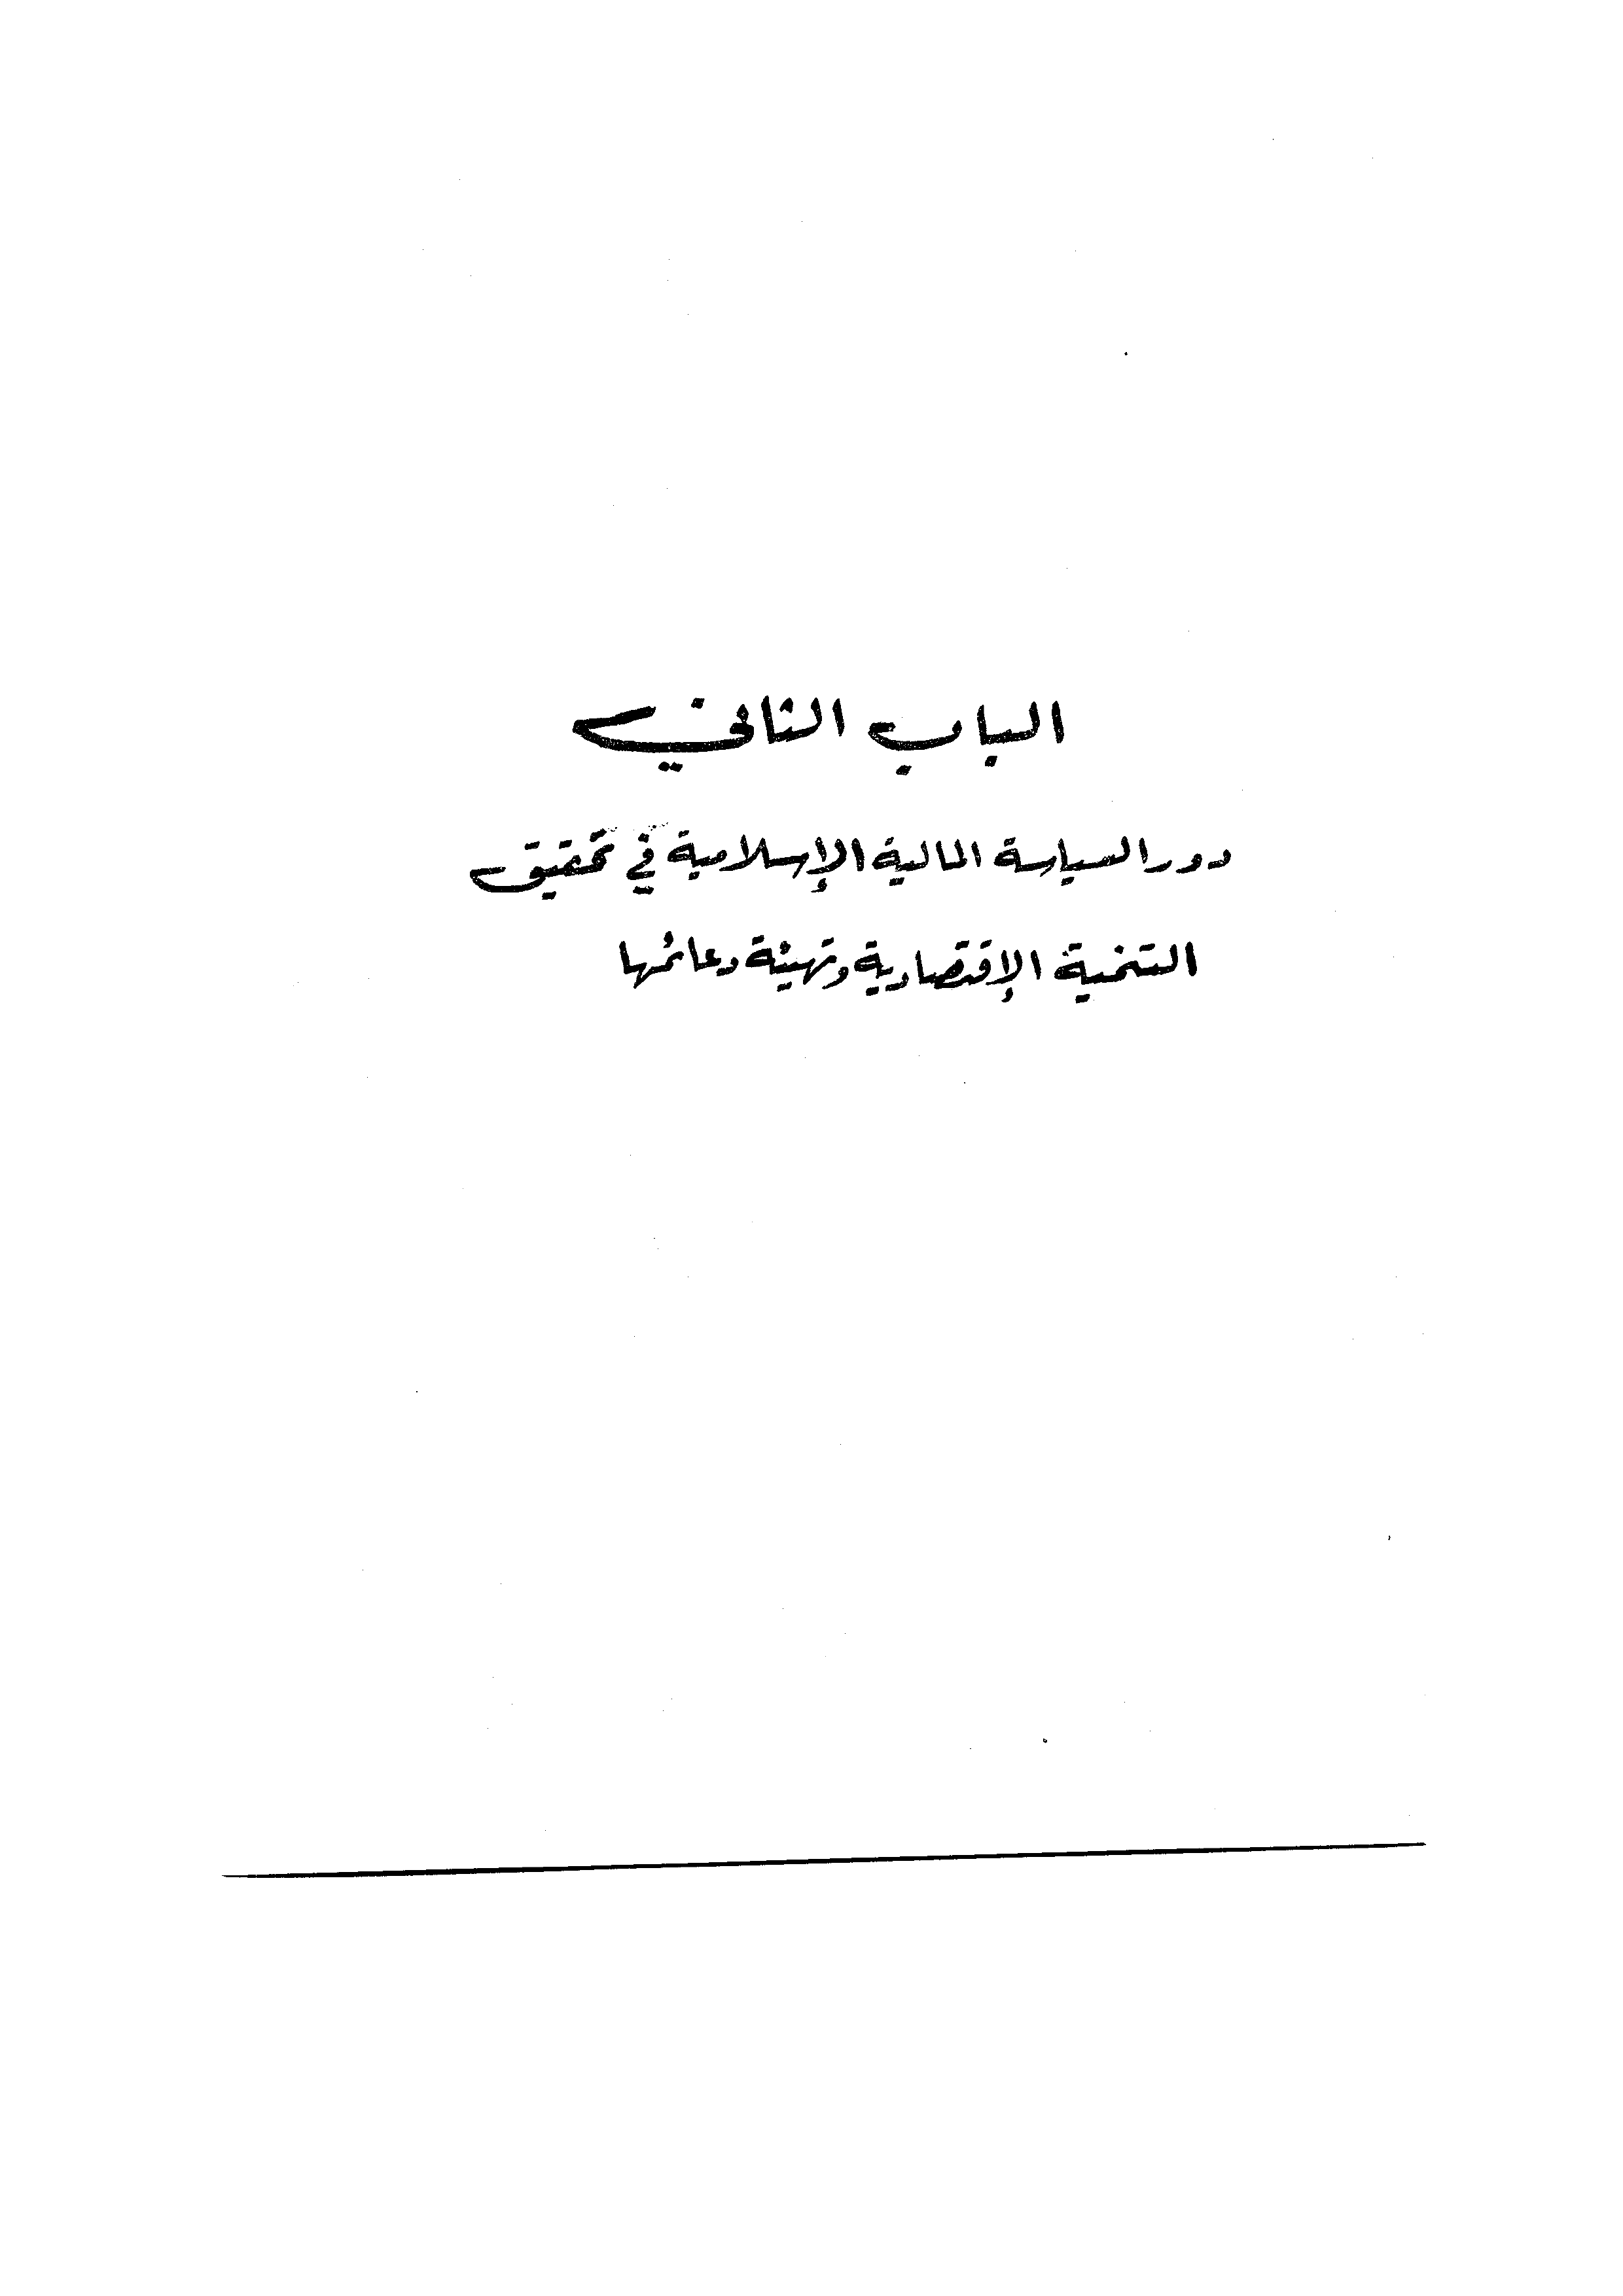 الباب الثاني
دور السياسة المالية الإسلامية في تحقيق
التنمية الإقتصادية وتهيئة دعائمها